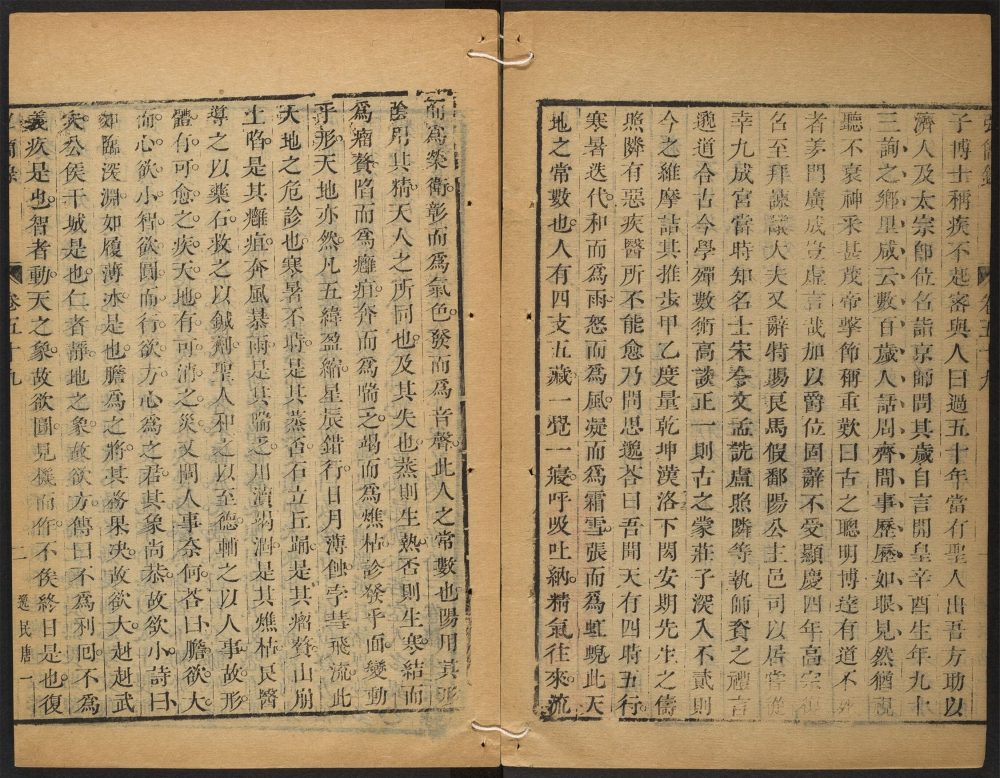 弘簡錄 卷五十九
子博士稱疾不起密與人曰過五十年當有聖人出吾方助以
濟人及太宗卽位召詣京師問其歲自言開皇辛酉生年九十
三詢之鄉里咸云數百歲人話周齊間事歷歷如眼見然猶視
聽不衰神采甚茂帝擊節稱重歎曰古之聰明博達有道不死
者羨門廣成豈虛言哉加以爵位固辭不受顯慶四年高宗
召至拜諫議大夫又辭特賜良馬假鄱陽公主邑司以居嘗從
幸九成宮當時知名士宋令文孟詵盧照隣等執師資之禮言
邈道合古今學殫數術高談正一則古之蒙莊子深入不貳則
今之維摩詰其推步甲乙度量乾坤漢洛下閎安期先生之儔
照隣有惡疾醫所不能愈乃問思邈荅曰吾聞天有四時五行
寒暑迭代和而爲雨怒而爲風凝而爲霜雪張而爲虹蜺此天
地之常數也人有四支五藏一覺一寢呼吸吐納精氣往來流
而爲榮衛彰而爲氣色發而爲音聲此人之常數也陽用其形
陰用其精天人之所同也及其失也蒸則生熱否則生寒結而
爲瘤贅陷而爲癰疽奔而爲喘乏竭而爲燋枯診發乎面變動
乎形天地亦然凡五緯盈縮星辰錯行日月薄蝕孛彗飛流此
天地之危診也寒暑不時是其蒸否石立丘踊是其瘤贅山崩
土陷是其癰疽奔風暴雨是其喘乏川瀆竭涸是其燋枯良醫
導之以藥石救之以鍼劑聖人和之以至德輔之以人事故形
體有可愈之疾天地有可消之災又問人事奈何荅曰膽欲大
而心欲小智欲圓而行欲方心爲之君其象尚恭故欲小詩曰
如臨深淵如履薄冰是也膽爲之將其務果决故欲大赳赳武
夫公侯干城是也仁者靜地之象故欲方傳曰不爲利囘不爲
義疚是也智者動天之象故欲圓見機而作不俟終日是也復
弘簡錄 卷五十九 二 逸民唐一